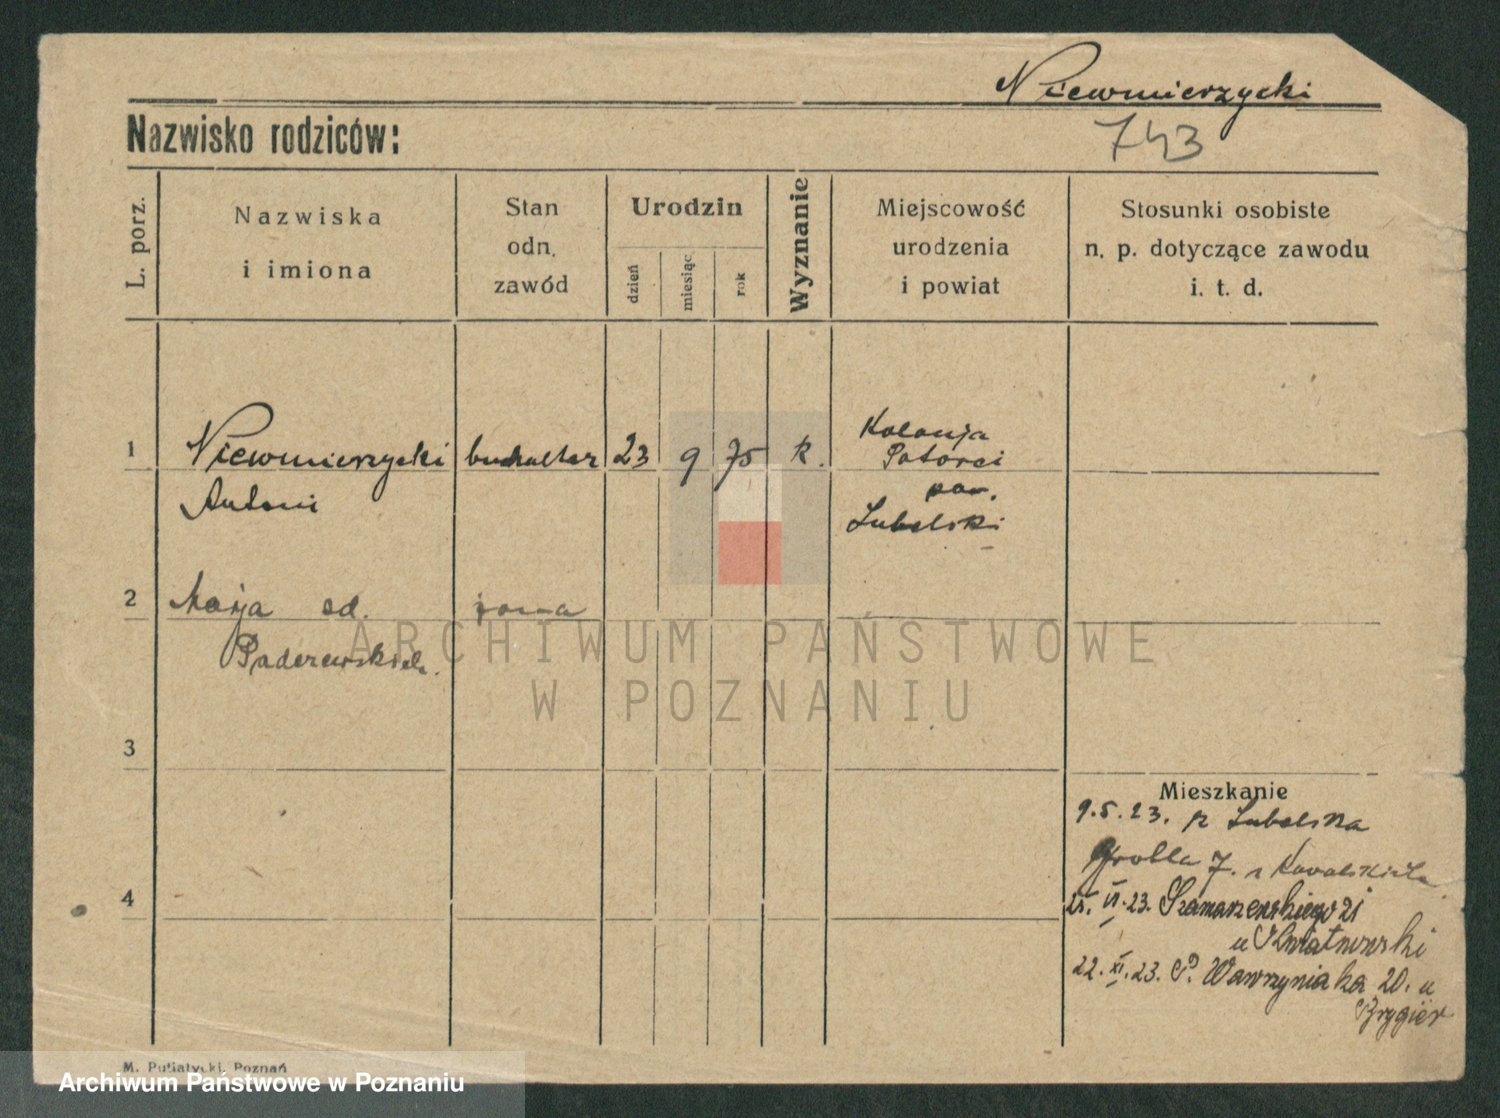 Niewmierzycki
743
Nazwisko rodziców:
L. porz.
Nazwiska
i imiona
Stan
odn.
zawód
Urodzin
dzień
miesiąc
rok
Wyznanie
Miejscowość
urodzenia
i powiat
Stosunki osobiste
n. p. dotyczące zawodu
i. t. d.
1
Niewmierzycki
Antoni
buchalter
23
9
75
k.
Kolonja
pow.
Lubelski
2
Marja od.
żona
3
4
Mieszkanie
9.5.23. z Lubelska
Grobla 7.
VI.23. Szamarzewskiego 21
u Kwiatkowski
22.XI.23. P. Wawrzyniaka 20. u
Brygier
M. Putiatycki, Poznań
ARCHIWUM PAŃSTWOWE
W POZNANIU
Archiwum Państwowe w Poznaniu